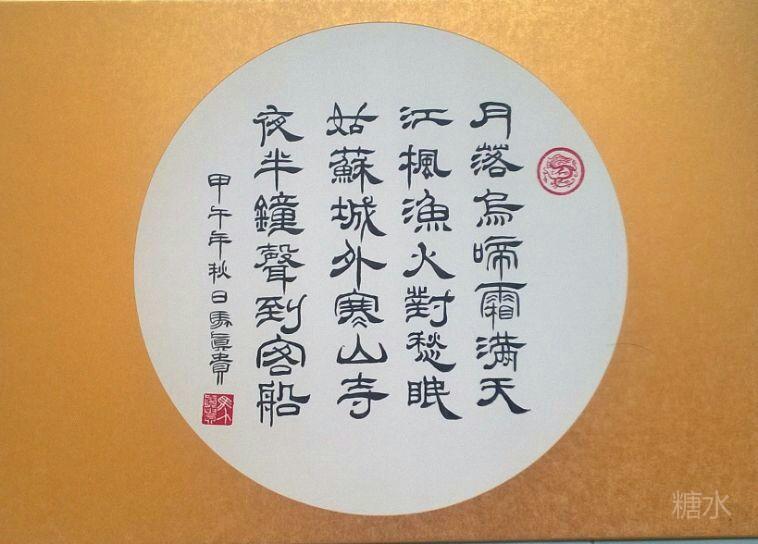 月落烏啼霜滿天
江楓漁火對愁眠
姑蘇城外寒山寺
夜半鐘聲到客船
甲午年秋日馬眞貴
糖水